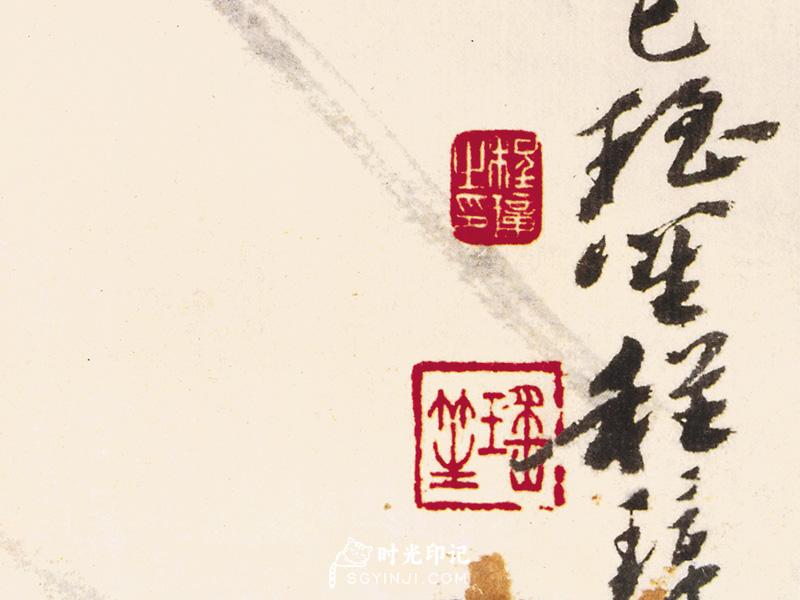 瑤笙程璋
程璋之印
瑤笙
时光印记
SGYINJI.COM